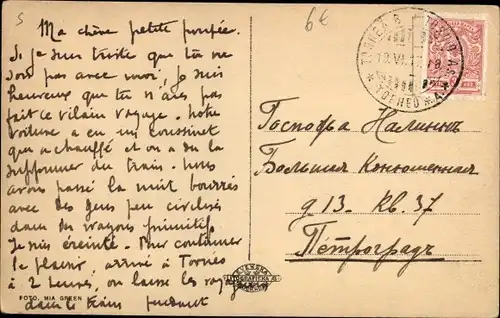 5
6€
Ma chère petite poupée.
Si je suis triste que tu ne
sois pas avec moi, je suis
heureuse que tu n'aies pas
fait ce vilain voyage. Notre
voiture a eu un coussinet
qui a chauffé et on a du la
supprimer du train. Nous
avons passé la nuit bourrés
avec des gens peu civilisés
dans des wagons primitifs.
Je suis éreintée. Pour continuer
le plaisir, arrivé à Tornéo
à 2 heures, on laisse les
dans le train
FOTO. MIA GREEN
TORNEÅ
TORNIO
Госпожа Калинков
Большая Конюшенная
д 13. кв. 37
Петроградъ